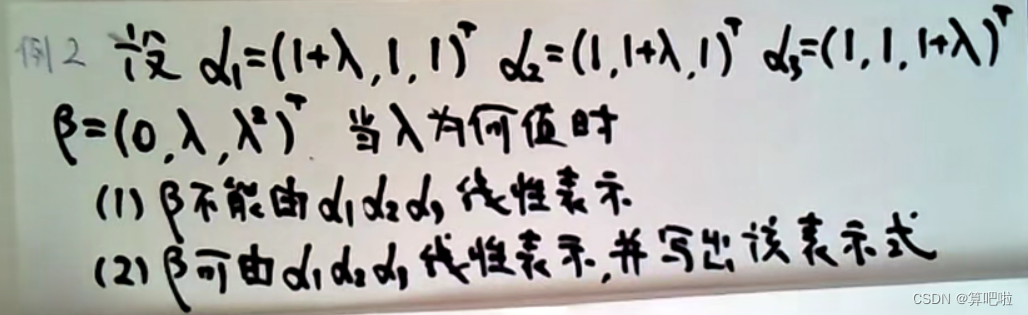 例2 设 α₁=(1+λ,1,1)ᵀ α₂=(1,1+λ,1)ᵀ α₃=(1,1,1+λ)ᵀ
β=(0,λ,λ²)ᵀ. 当λ为何值时
(1) β不能由α₁α₂α₃线性表示
(2) β可由α₁α₂α₃线性表示,并写出该表示式
CSDN @算吧啦